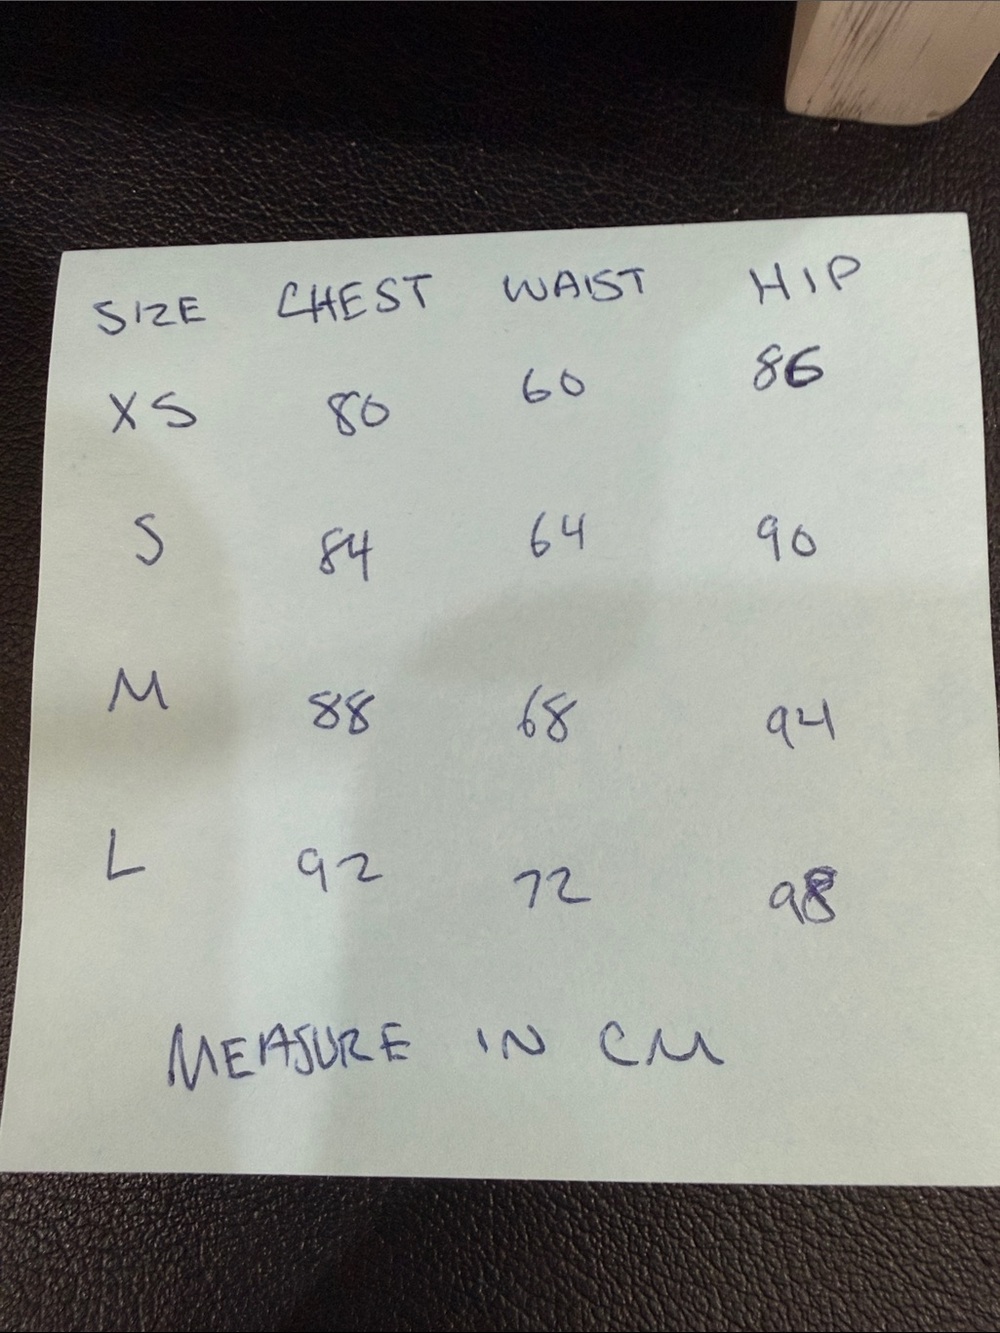 SIZE CHEST WAIST HIP
XS 80 60 86
S 84 64 90
M 88 68 94
L 92 72 98
MEASURE IN CM